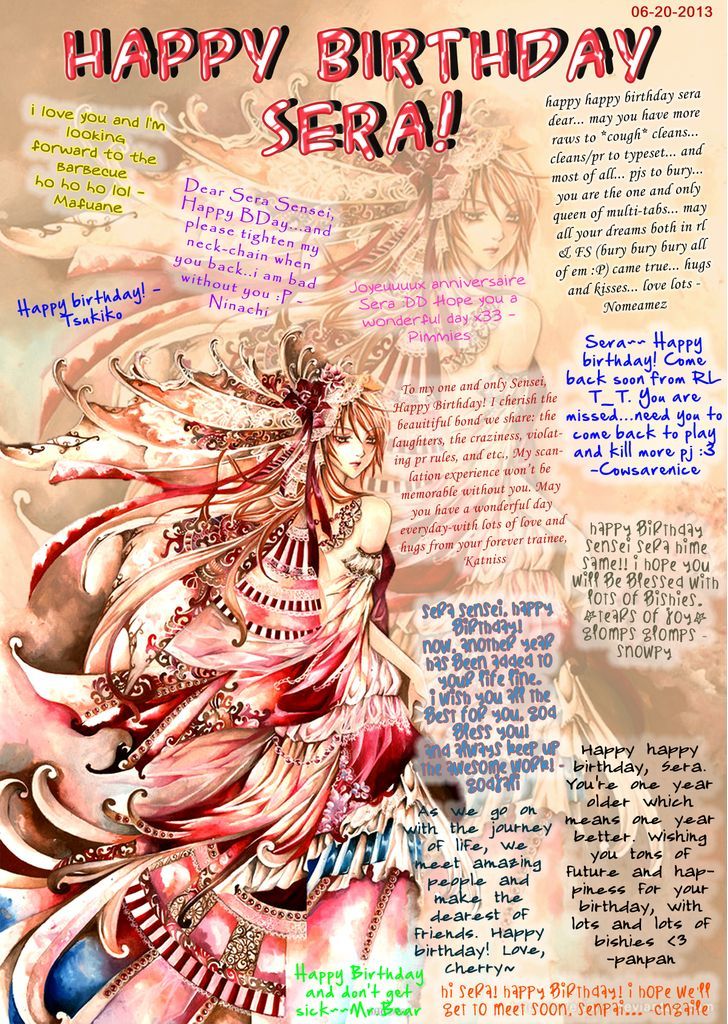 06-20-2013
HAPPY BIRTHDAY
SERA!
i love you and I'm
looking
forward to the
Barbecue
ho ho ho lol -
Mafuane
Dear Sera Sensei,
Happy BDay...and
please tighten my
neck-chain when
you back..i am bad
without you :P -
Ninachi
happy happy birthday sera
dear... may you have more
raws to *cough* cleans...
cleans/pr to typeset... and
most of all... pjs to bury...
you are the one and only
queen of multi-tabs... may
all your dreams both in rl
& FS (bury bury bury all
of em :P) came true... hugs
and kisses... love lots -
Nomeamez
Happy birthday! -
Tsukiko
Joyeuuuux anniversaire
Sera :DD Hope you a
wonderful day x33 -
Pimmies
Sera~~ Happy
birthday! Come
back soon from RL
T_T. You are
missed...need you to
come back to play
and kill more pj :3
-Cowsarenice
To my one and only Sensei,
Happy Birthday! I cherish the
beauitiful bond we share; the
laughters, the craziness, violat-
ing pr rules, and etc., My scan-
lation experience won't be
memorable without you. May
you have a wonderful day
everyday-with lots of love and
hugs from your forever trainee,
Katniss
happy Birthday
sensei sera hime
same!! i hope you
will Be Blessed with
lots of Bishies.
*tears of joy*
glomps glomps -
snowpy
sera sensei, happy
Birthday!
now, another year
has Been added to
your life line.
i wish you all the
Best for you. god
Bless you!
and always keep up
the awesome work! -
Happy happy
birthday, Sera.
You're one year
older which
means one year
better. Wishing
you tons of
future and hap-
piness for your
birthday, with
lots and lots of
bishies <3
-panpan
As we go on
with the journey
of life, we
meet amazing
people and
make the
dearest of
friends. Happy
birthday! Love,
Cherry~
Happy Birthday
and don't get
sick~~Mr.Bear
hi sera! happy Birthday! i hope we'll
get to meet soon, senpai... -